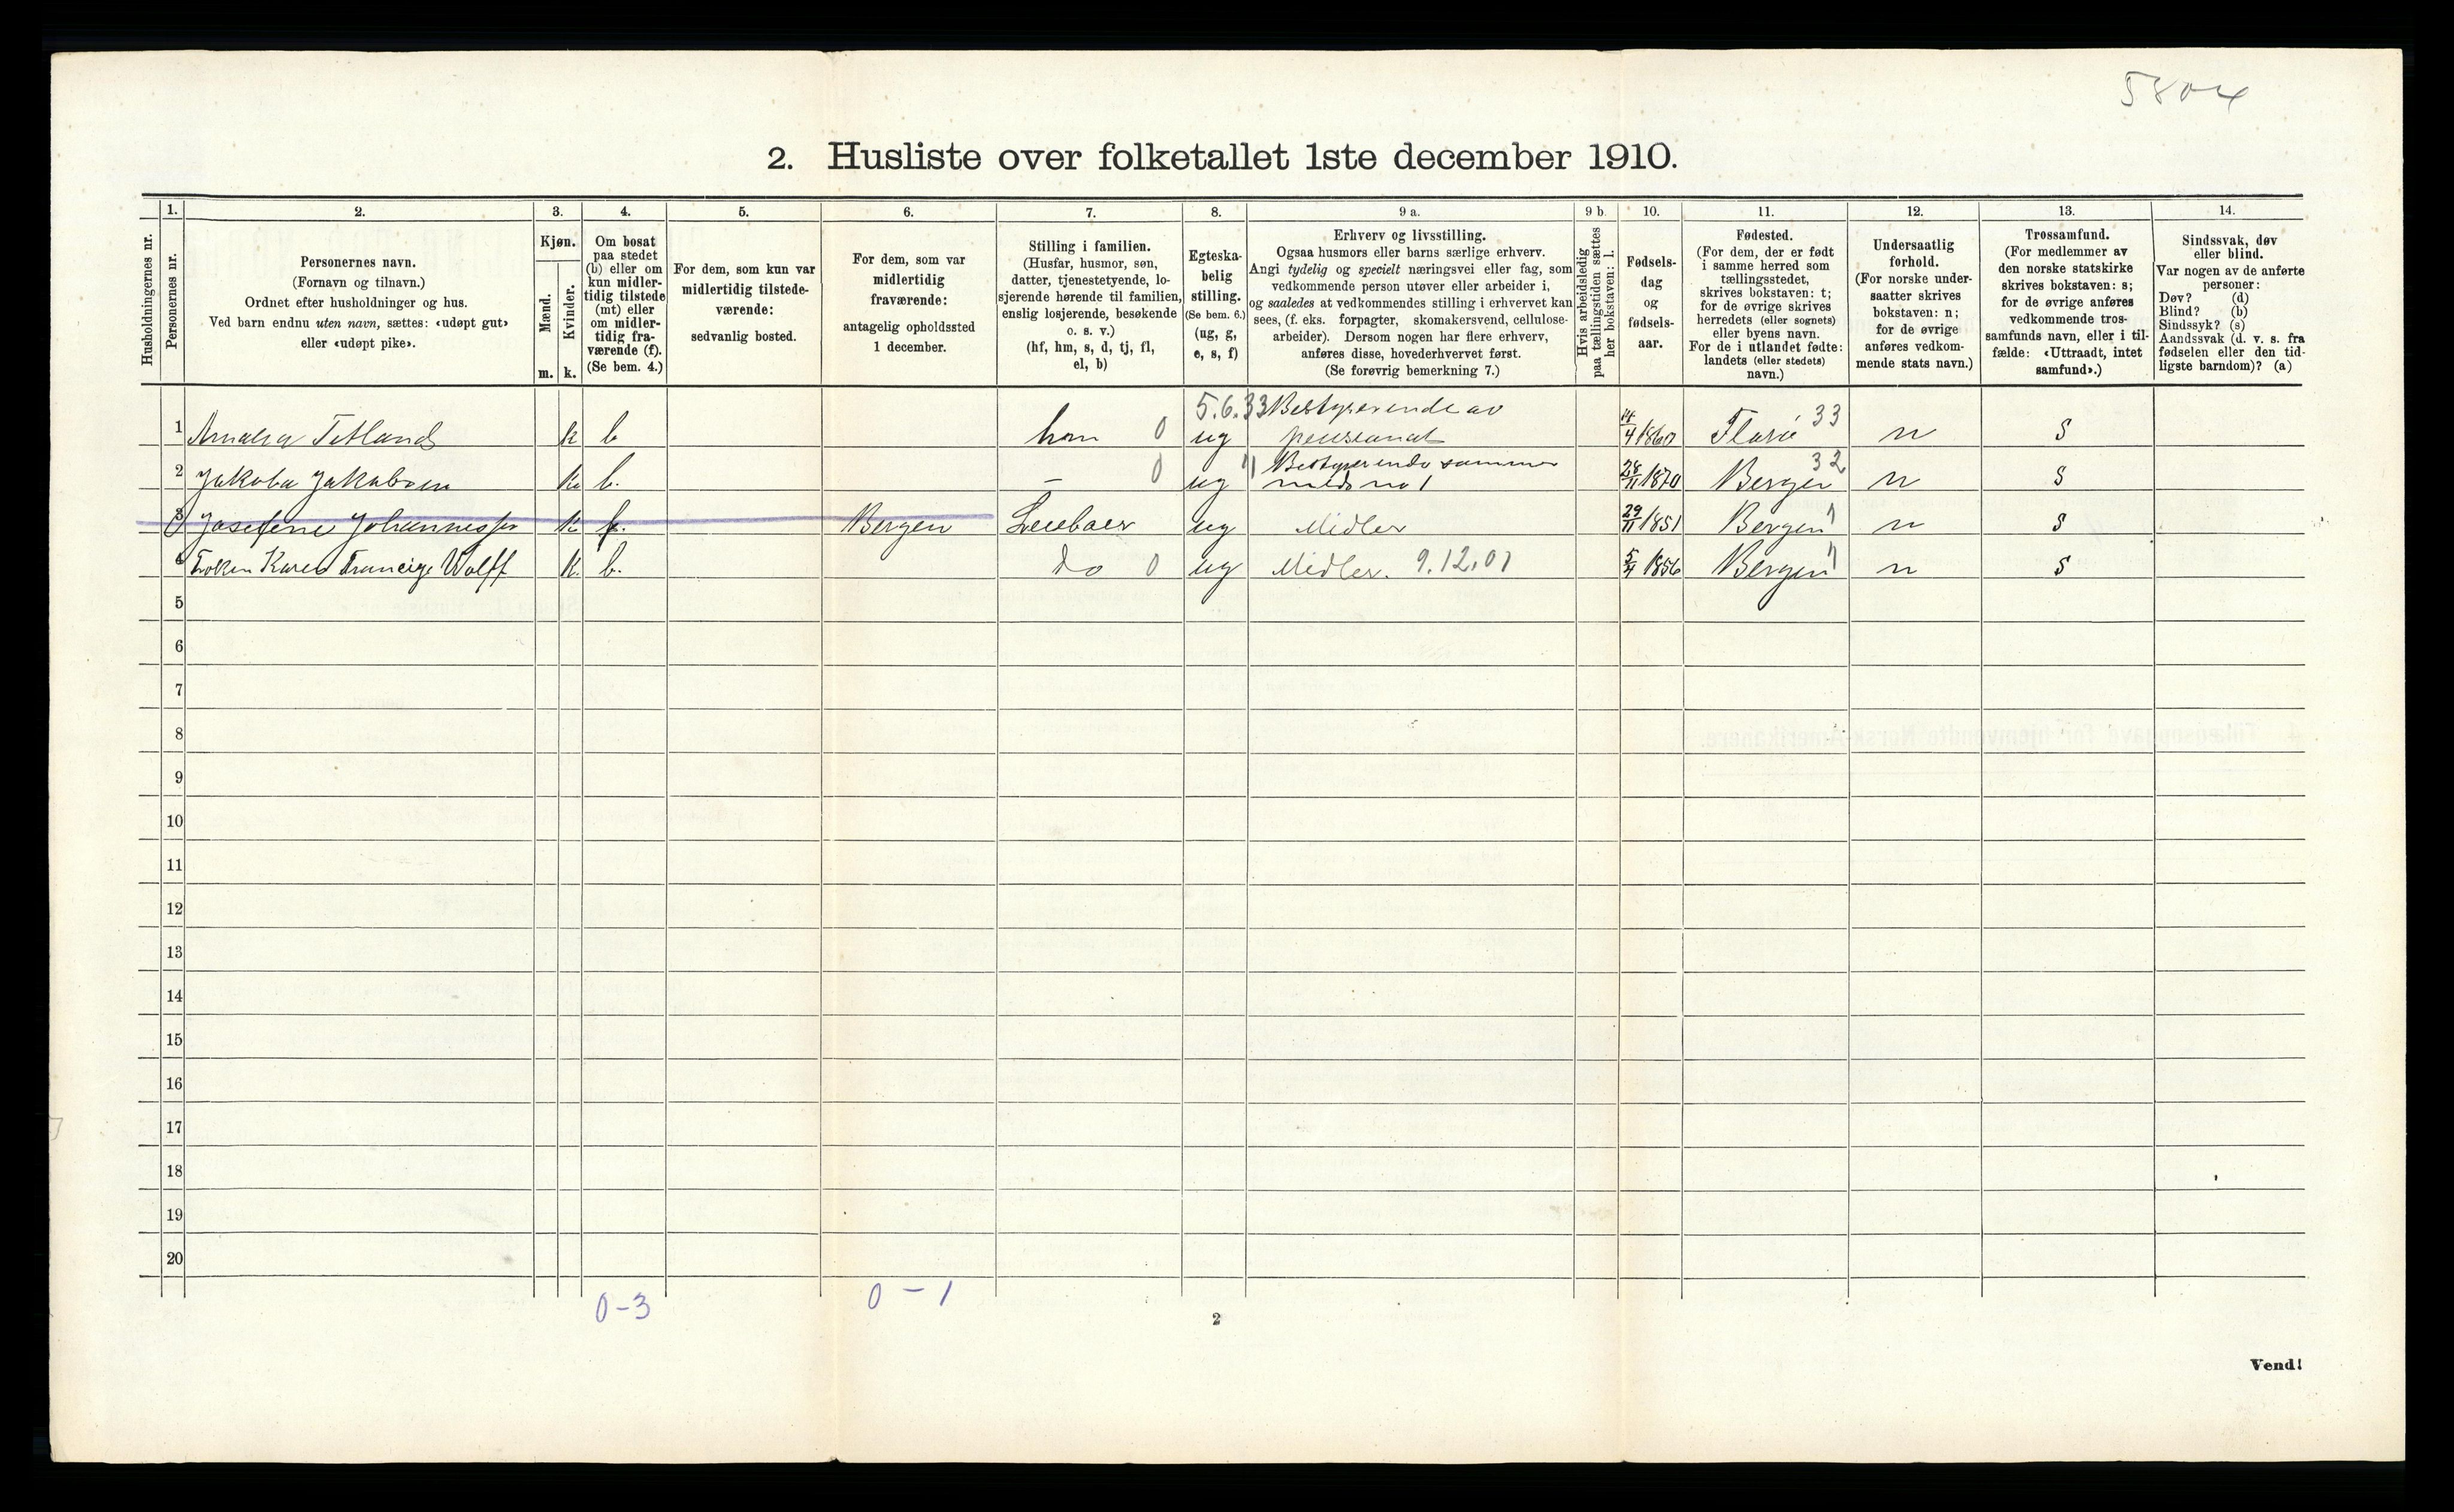 5804
2. Husliste over folketallet 1ste december 1910.
1. 2. 3. 4. 5. 6. 7. 8. 9 a. 9 b. 10. 11. 12. 13. 14.
Husholdningernes nr.
Personernes nr.
Personernes navn.
(Fornavn og tilnavn.)
Ordnet efter husholdninger og hus.
Ved barn endnu uten navn, sættes: «udøpt gut»
eller «udøpt pike».
Kjøn.
Mænd.
Kvinder.
m. k.
Om bosat
paa stedet
(b) eller om
kun midler-
tidig tilstede
(mt) eller
om midler-
tidig fra-
værende (f).
(Se bem. 4.)
For dem, som kun var
midlertidig tilstede-
værende:
sedvanlig bosted.
For dem, som var
midlertidig
fraværende:
antagelig opholdssted
1 december.
Stilling i familien.
(Husfar, husmor, søn,
datter, tjenestetyende, lo-
sjerende hørende til familien,
enslig losjerende, besøkende
o. s. v.)
(hf, hm, s, d, tj, fl,
el, b)
Egteska-
belig
stilling.
(Se bem. 6.)
(ug, g,
e, s, f)
Erhverv og livsstilling.
Ogsaa husmors eller barns særlige erhverv.
Angi tydelig og specielt næringsvei eller fag, som
vedkommende person utøver eller arbeider i,
og saaledes at vedkommendes stilling i erhvervet kan
sees, (f. eks. forpagter, skomakersvend, cellulose-
arbeider). Dersom nogen har flere erhverv,
anføres disse, hovederhvervet først.
(Se forøvrig bemerkning 7.)
Hvis arbeidsledig
paa tællingstiden sættes
her bokstaven: l.
Fødsels-
dag
og
fødsels-
aar.
Fødested.
(For dem, der er født
i samme herred som
tællingsstedet,
skrives bokstaven: t;
for de øvrige skrives
herredets (eller sognets)
eller byens navn.
For de i utlandet fødte:
landets (eller stedets)
navn.)
Undersaatlig
forhold.
(For norske under-
saatter skrives
bokstaven: n;
for de øvrige
anføres vedkom-
mende stats navn.)
Trossamfund.
(For medlemmer av
den norske statskirke
skrives bokstaven: s;
for de øvrige anføres
vedkommende tros-
samfunds navn, eller i til-
fælde: «Uttraadt, intet
samfund».)
Sindssvak, døv
eller blind.
Var nogen av de anførte
personer:
Døv? (d)
Blind? (b)
Sindssyk? (s)
Aandssvak (d. v. s. fra
fødselen eller den tid-
ligste barndom)? (a)
5.6.33 Bestyrerende av
1 Amalia Tetland k b hm 0 ug pensionat 14/4 1860 Florö 33 n s
Bestyrerende sammen
2 Jakoba Jakobsen k b. – 0 ug med no 1 28/11 1870 Bergen 32 n s
3 Josefine k f. Bergen ug Midler 29/11 1851 Bergen n s
4 Frøken Karen Wolff k. b. do 0 ug Midler. 9.12.01 5/4 1856 Bergen n s
5
6
7
8
9
10
11
12
13
14
15
16
17
18
19
20
0-3 0-1
2
Vend!